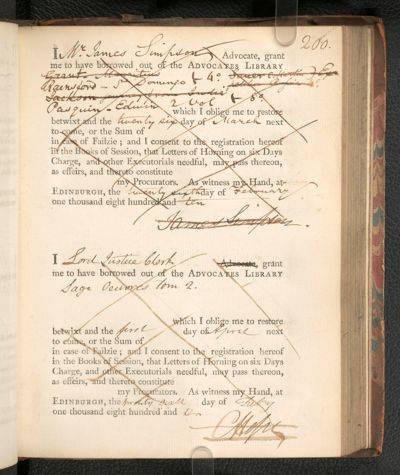 200.
I Mr. James Simpson, Advocate, grant
me to have borrowed out of the ADVOCATES LIBRARY
Grant Mauritius
Rainsford St Domingo 4o
Jackson
Pasquin's Edwin 2 Vol 8o
which I oblige me to restore
betwixt and the twenty six day of March next
to come, or the Sum of
in case of Failzie; and I consent to the registration hereof
in the Books of Session, that Letters of Horning on six Days
Charge, and other Executorials needful, may pass thereon,
as effeirs, and thereto constitute
my Procurators. As witness my Hand, at
EDINBURGH, the twenty sixth day of February
one thousand eight hundred and ten
James Simpson
I Lord Justice Clerk Advocate, grant
me to have borrowed out of the ADVOCATES LIBRARY
Sage Oeuvres tom 2.
which I oblige me to restore
betwixt and the first day of April next
to come, or the Sum of
in case of Failzie; and I consent to the registration hereof
in the Books of Session, that Letters of Horning on six Days
Charge, and other Executorials needful, may pass thereon,
as effeirs, and thereto constitute
my Procurators. As witness my Hand, at
EDINBURGH, the twenty sixth day of
one thousand eight hundred and ten
C Hope